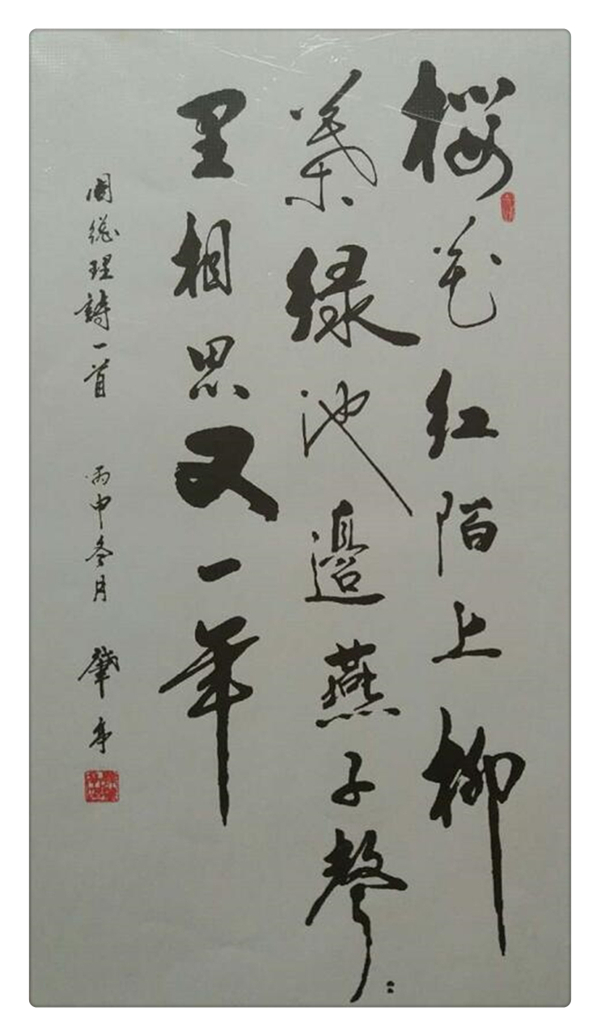 櫻花红陌上柳
葉緑池邊燕子聲:
里相思又一年
周總理詩一首 丙申冬月